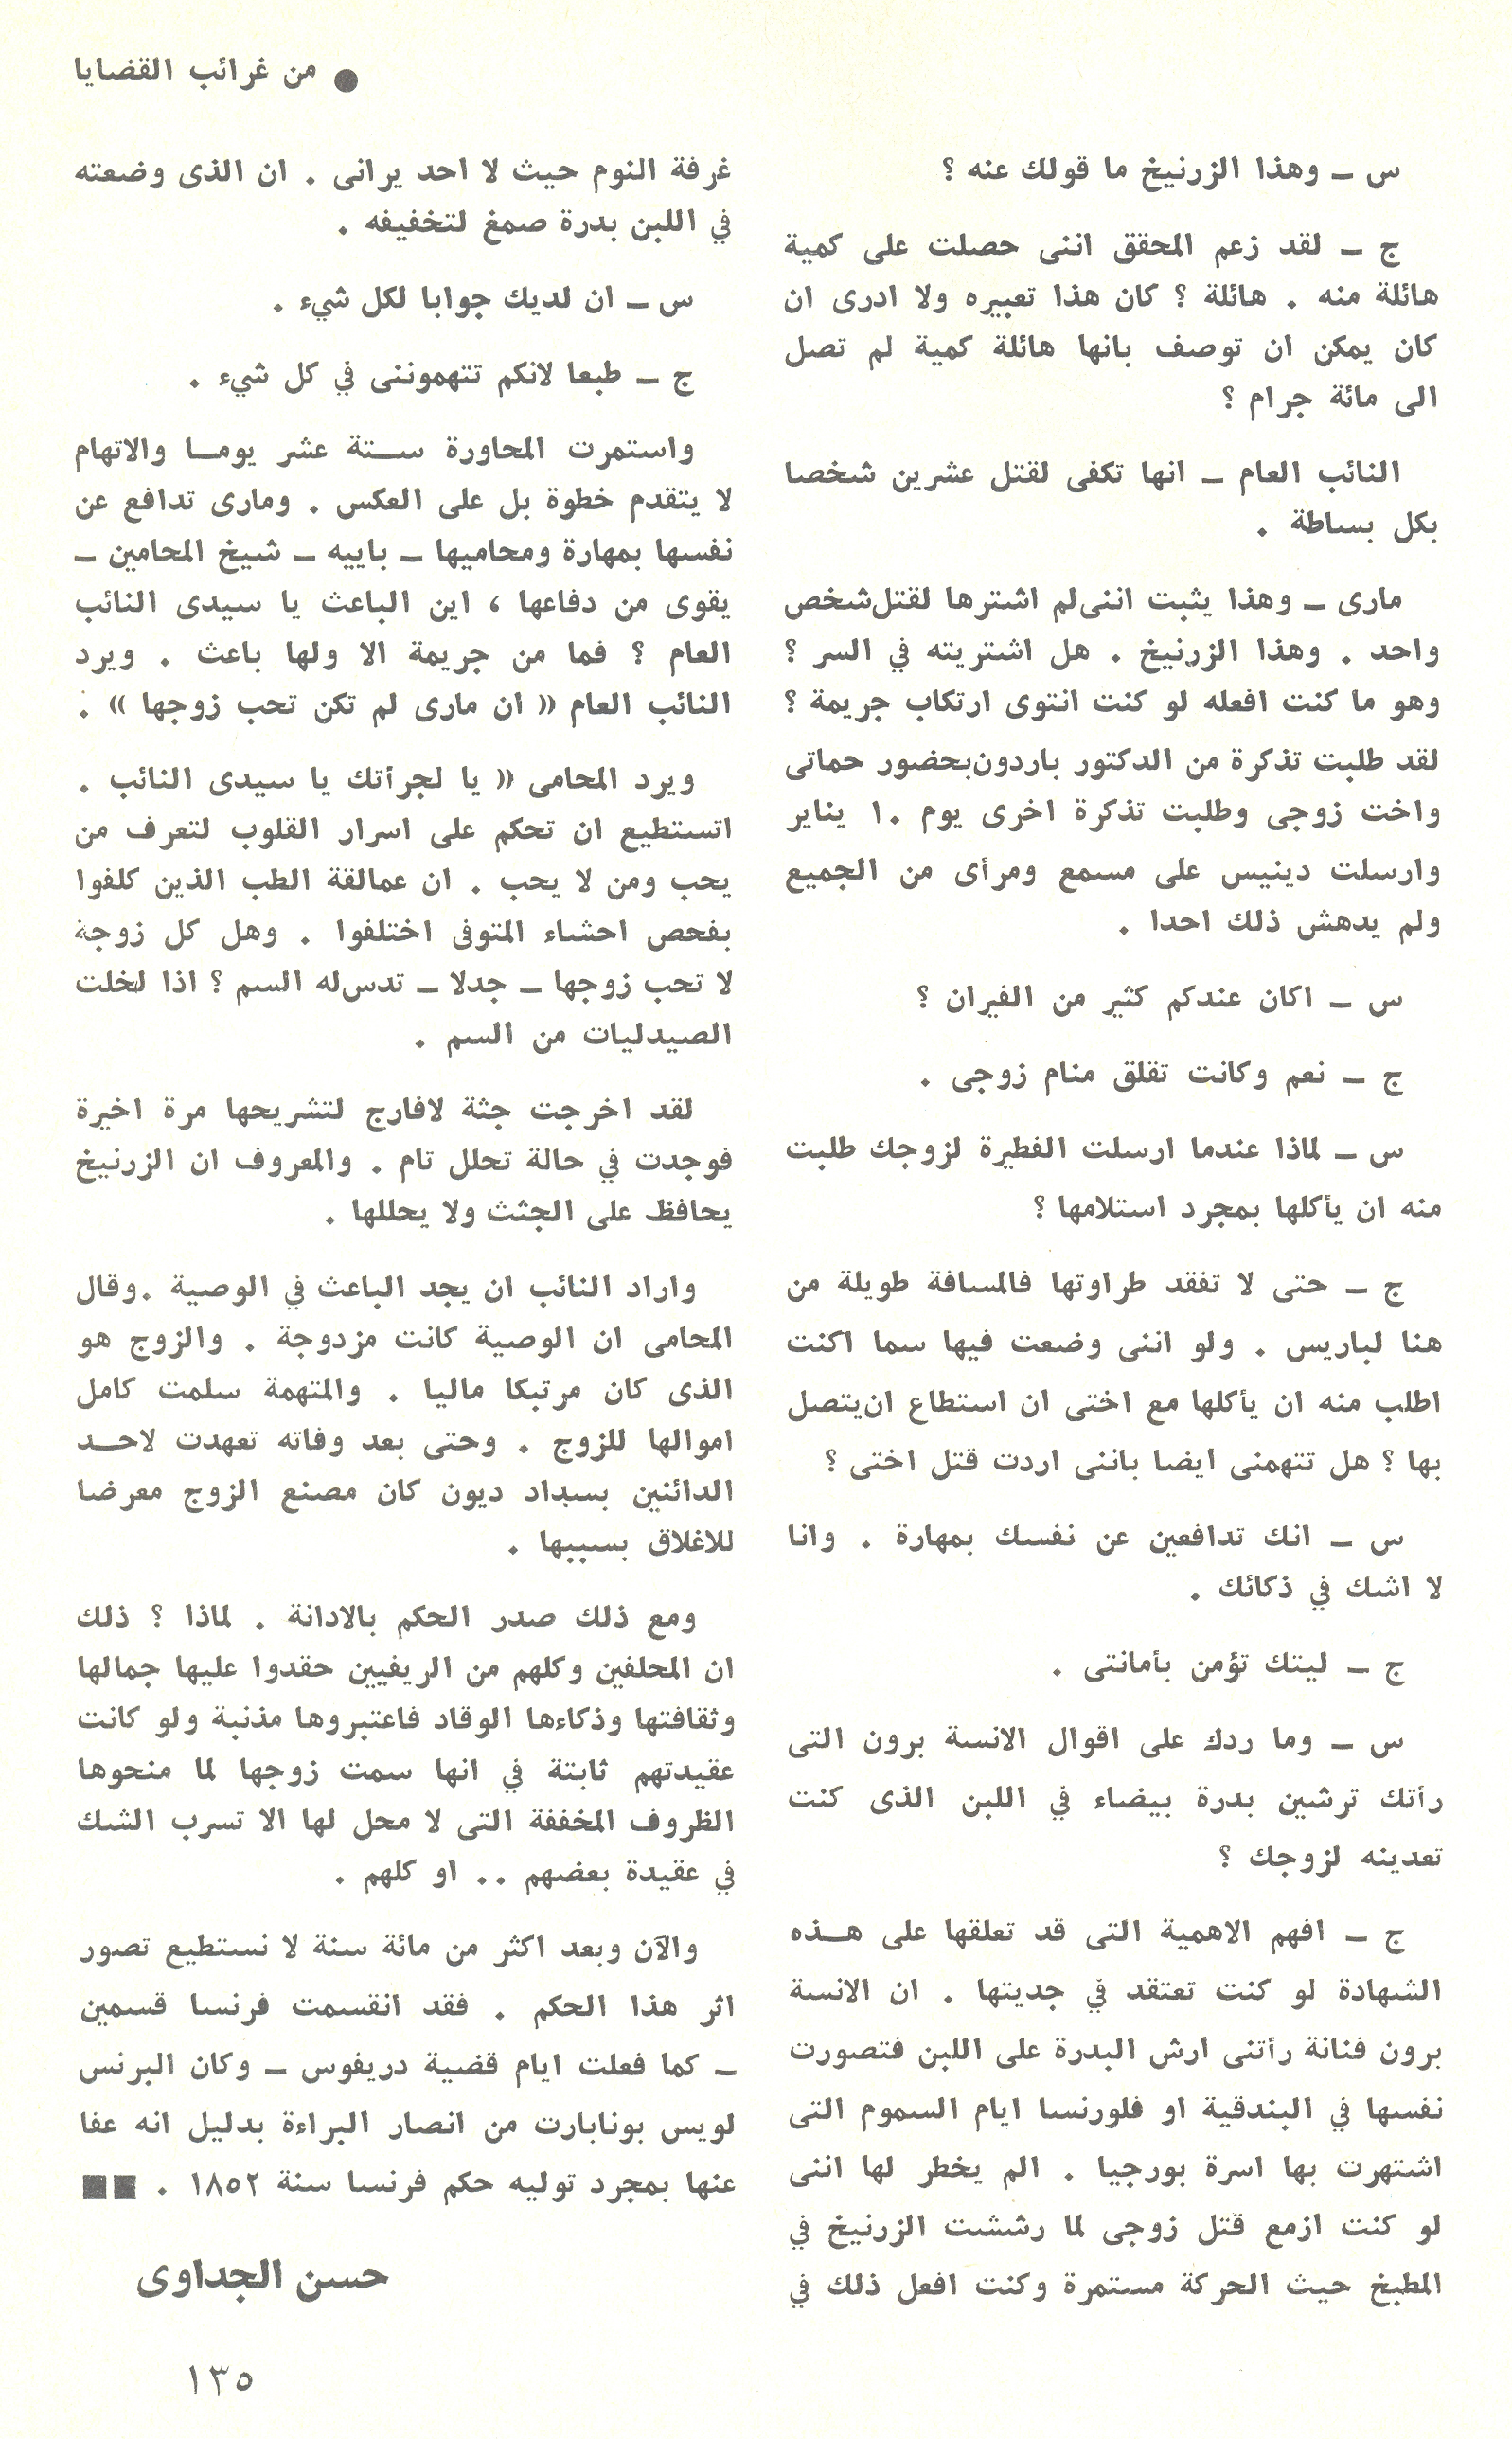 ● من غرائب القضايا
س ــ وهذا الزرنيخ ما قولك عنه ؟
ج ــ لقد زعم المحقق اننى حصلت على كمية
هائلة منه . هائلة ؟ كان هذا تعبيره ولا ادرى ان
كان يمكن ان توصف بانها هائلة كمية لم تصل
الى مائة جرام ؟
النائب العام ــ انها تكفى لقتل عشرين شخصا
بكل بساطة .
مارى ــ وهذا يثبت اننى لم اشترها لقتل شخص
واحد . وهذا الزرنيخ . هل اشتريته في السر ؟
وهو ما كنت افعله لو كنت انتوى ارتكاب جريمة ؟
لقد طلبت تذكرة من الدكتور باردون بحضور حماتى
واخت زوجى وطلبت تذكرة اخرى يوم ١٠ يناير
وارسلت دينيس على مسمع ومرأى من الجميع
ولم يدهش ذلك احدا .
س ــ اكان عندكم كثير من الفيران ؟
ج ــ نعم وكانت تقلق منام زوجى .
س ــ لماذا عندما ارسلت الفطيرة لزوجك طلبت
منه ان يأكلها بمجرد استلامها ؟
ج ــ حتى لا تفقد طراوتها فالمسافة طويلة من
هنا لباريس . ولو اننى وضعت فيها سما اكنت
اطلب منه ان يأكلها مع اختى ان استطاع ان يتصل
بها ؟ هل تتهمنى ايضا باننى اردت قتل اختى ؟
س ــ انك تدافعين عن نفسك بمهارة . وانا
لا اشك في ذكائك .
ج ــ ليتك تؤمن بأمانتى .
س ــ وما ردك على اقوال الانسة برون التى
رأتك ترشين بدرة بيضاء في اللبن الذى كنت
تعدينه لزوجك ؟
ج ــ افهم الاهمية التى قد تعلقها على هــذه
الشهادة لو كنت تعتقد في جديتها . ان الانسة
برون فنانة رأتنى ارش البدرة على اللبن فتصورت
نفسها في البندقية او فلورنسا ايام السموم التى
اشتهرت بها اسرة بورجيا . الم يخطر لها اننى
لو كنت ازمع قتل زوجى لما رششت الزرنيخ في
المطبخ حيث الحركة مستمرة وكنت افعل ذلك في
غرفة النوم حيث لا احد يرانى . ان الذى وضعته
في اللبن بدرة صمغ لتخفيفه .
س ــ ان لديك جوابا لكل شيء .
ج ــ طبعا لانكم تتهموننى في كل شيء .
واستمرت المحاورة ســتة عشر يومــا والاتهام
لا يتقدم خطوة بل على العكس . ومارى تدافع عن
نفسها بمهارة ومحاميها ــ باييه ــ شيخ المحامين ــ
يقوى من دفاعها ، اين الباعث يا سيدى النائب
العام ؟ فما من جريمة الا ولها باعث . ويرد
النائب العام « ان مارى لم تكن تحب زوجها » .
ويرد المحامى « يا لجرأتك يا سيدى النائب .
اتستطيع ان تحكم على اسرار القلوب لتعرف من
يحب ومن لا يحب . ان عمالقة الطب الذين كلفوا
بفحص احشاء المتوفى اختلفوا . وهل كل زوجة
لا تحب زوجها ــ جدلا ــ تدس له السم ؟ اذا لخلت
الصيدليات من السم .
لقد اخرجت جثة لافارج لتشريحها مرة اخيرة
فوجدت في حالة تحلل تام . والمعروف ان الزرنيخ
يحافظ على الجثث ولا يحللها .
واراد النائب ان يجد الباعث في الوصية . وقال
المحامى ان الوصية كانت مزدوجة . والزوج هو
الذى كان مرتبكا ماليا . والمتهمة سلمت كامل
اموالها للزوج . وحتى بعد وفاته تعهدت لاحــد
الدائنين بسداد ديون كان مصنع الزوج معرضا
للاغلاق بسببها .
ومع ذلك صدر الحكم بالادانة . لماذا ؟ ذلك
ان المحلفين وكلهم من الريفيين حقدوا عليها جمالها
وثقافتها وذكاءها الوقاد فاعتبروها مذنبة ولو كانت
عقيدتهم ثابتة في انها سمت زوجها لما منحوها
الظروف المخففة التى لا محل لها الا تسرب الشك
في عقيدة بعضهم .. او كلهم .
والآن وبعد اكثر من مائة سنة لا نستطيع تصور
اثر هذا الحكم . فقد انقسمت فرنسا قسمين
ــ كما فعلت ايام قضية دريفوس ــ وكان البرنس
لويس بونابارت من انصار البراءة بدليل انه عفا
عنها بمجرد توليه حكم فرنسا سنة ١٨٥٢ . ■■
حسن الجداوى
١٣٥